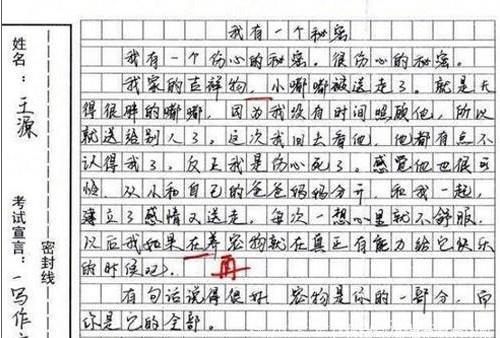 我有一个秘密
我有一个伤心的秘密。很伤心的秘密。
我家的吉祥物,小嘟嘟被送走了。就是长
得很胖的嘟嘟,因为我没有时间照顾他,所以
就送给别人了。这次我回去看他,他都有点不
认得我了,反正我是伤心死了。感觉他也很可
怜,从小和自己的爸爸妈妈分开,和我一起,
建立了感情又送走,每次一想心里就不舒服。
以后我如果在养宠物就在真正有能力给它快乐
的时候双。 再
有句话说得很好 宠物是你的一部分,而
你是它的全部。
姓名:王源
考试宣言:一写作
密封线